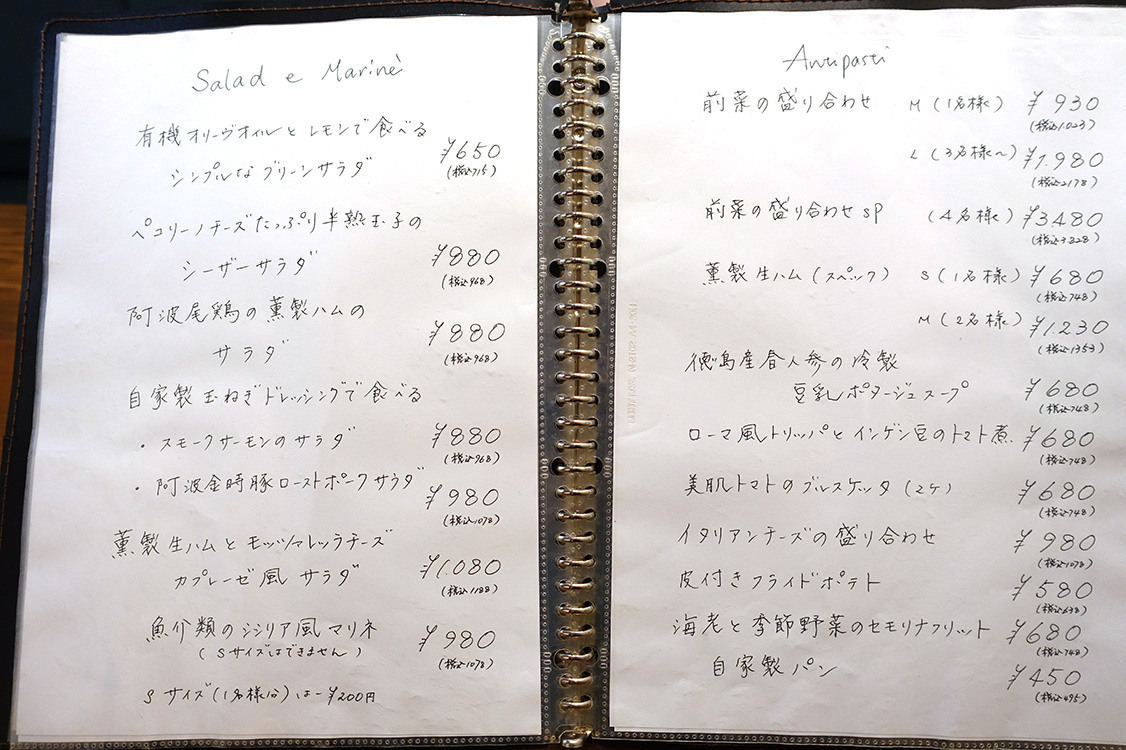 Salad e Marinè
有機オリーヴオイルとレモンで食べる
シンプルなグリーンサラダ ¥650
(税込715)
ペコリーノチーズたっぷり半熟玉子の
シーザーサラダ ¥880
(税込968)
阿波尾鶏の薫製ハムの
サラダ ¥880
(税込968)
自家製玉ねぎドレッシングで食べる
・スモークサーモンのサラダ ¥880
(税込968)
・阿波金時豚ローストポークサラダ ¥980
(税込1078)
薫製生ハムとモッツァレッラチーズ
カプレーゼ風サラダ ¥1.080
(税込1188)
魚介類のシシリア風マリネ ¥980
(Sサイズはできません) (税込1078)
Sサイズ(1名様分)は-¥200円
Antipasti
前菜の盛り合わせ M(1名様) ¥930
(税込1023)
L(3名様〜) ¥1.980
(税込2178)
前菜の盛り合わせSP (4名様) ¥3.480
(税込3828)
薫製生ハム(スペック) S(1名様) ¥680
(税込748)
M(2名様) ¥1.230
(税込1353)
徳島産春人参の冷製
豆乳ポタージュスープ ¥680
(税込748)
ローマ風トリッパとインゲン豆のトマト煮 ¥680
(税込748)
美肌トマトのブルスケッタ(2ケ) ¥680
(税込748)
イタリアンチーズの盛り合わせ ¥980
(税込1078)
皮付きフライドポテト ¥580
(税込638)
海老と季節野菜のセモリナフリット ¥680
(税込748)
自家製パン ¥450
(税込495)